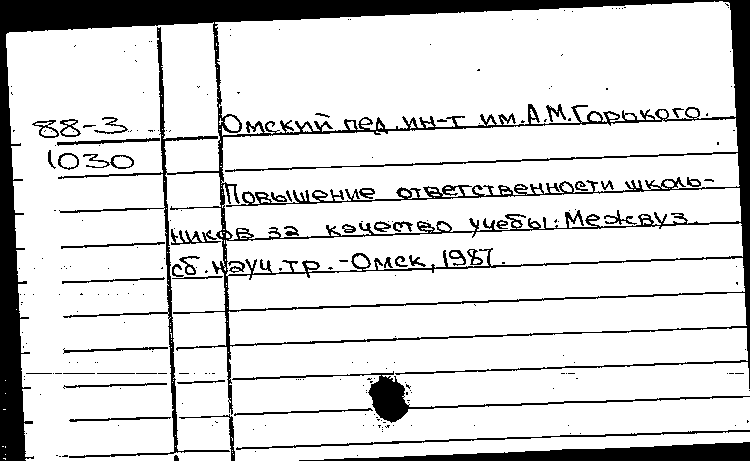 88-3 Омский пед. ин-т им. А.М.Горького.
1030
Повышение ответственности школь-
ников за качество учебы: Межвуз.
сб. науч. тр. - Омск, 1987.